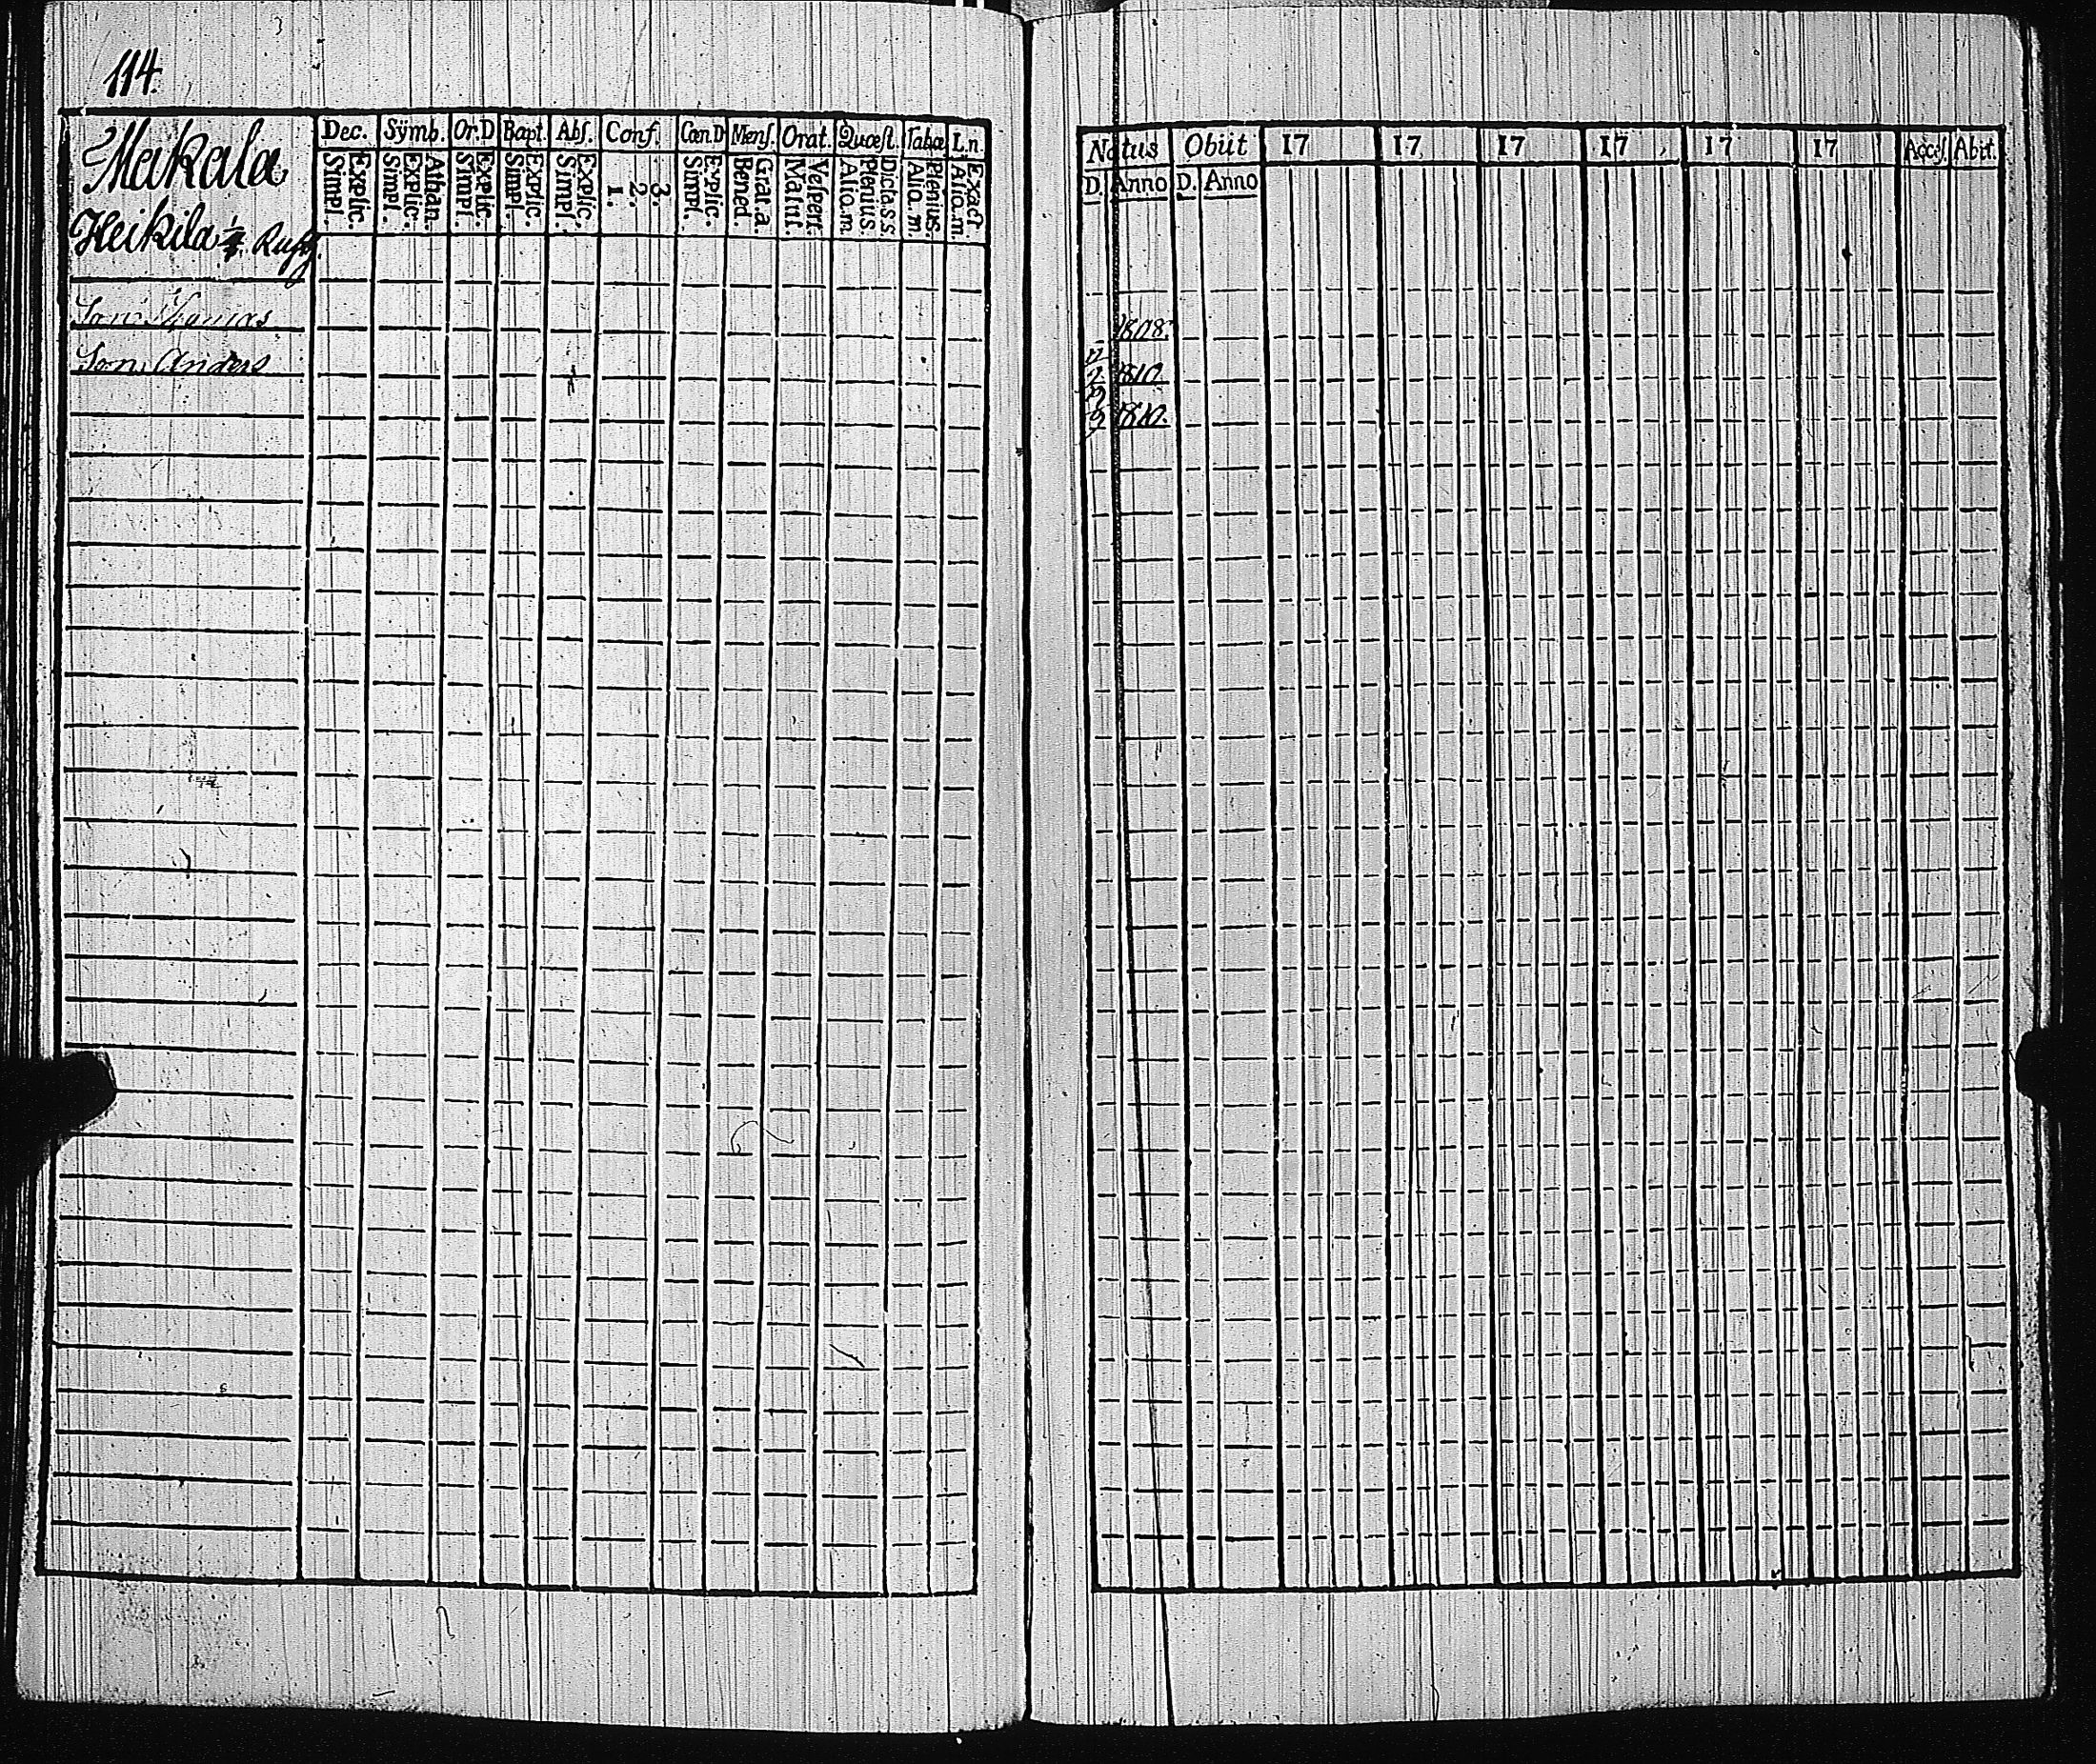 114.
Makala
Heikila
Dec. Symb. Or.D Bapt. Abſ. Conf. Cœn.D Menſ. Orat. Quæſt. Tabæ L.n.
Simpl. Explic. Simpl. Explic. Athan. Simpl. Explic. Simpl. Explic. Simpl. Explic. 1. 2. 3. Simpl. Explic. Bened. Grat.a Matut. Veſpert. Alio.m. Plenius Dicta.s.s. Alio.m. Plenius. Alio.m. Exact
Son Thomas
Son Anders
Natus Obiit 17 17 17 17 17 17 Acceſ. Abit.
D. Anno D. Anno
1808.
1810
1810.